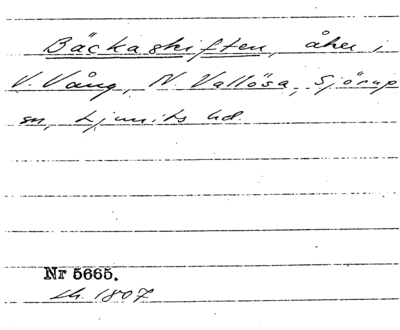 Bäckaskiften, åker i
V. Vång, N. Vallösa, Sjörup
sn, Ljunits hd.
Nr 5665.
LM. 1807